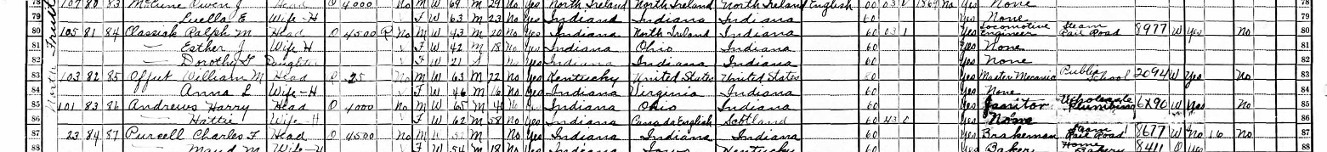 78 107 80 83 McCune Owen J Head O 4000 No M W 69 M 29 No Yes North Ireland North Ireland North Ireland English 00 03 0 1869 Na Yes None 78
Luella E Wife-H F W 63 M 23 No Yes Indiana Indiana Indiana 60 Yes None
80 105 81 84 Ralph M Head O 4500 R No M W 43 M 20 No Yes Indiana North Ireland Indiana 60 03 1 Yes Locomotive Engineer Steam Rail Road 8977 W Yes No 80
81 Esther J Wife-H F W 42 M 18 No Yes Indiana Ohio Indiana 60 Yes None 81
82 Dorothy Daughter F W 21 S Yes Indiana Indiana Indiana 60 Yes None 82
83 103 82 85 Offut William M Head R 25 No M W 63 M 22 No Yes Kentucky United States United States 60 Yes Master Mecanic Public School 2094 W Yes No 83
84 Anna L Wife-H F W 46 M 16 No Yes Indiana Virginia Indiana 60 Yes None 84
85 101 83 86 Andrews Harry Head O 4000 No M W 65 M Yes Indiana Ohio Indiana 60 Yes Janitor Plumbing 6X90 W Yes No 85
86 Hattie Wife-H F W 62 M 58 No Yes Indiana Canada English Scotland 60 43 0 Yes None 86
87 23 84 87 Purcell Charles F Head O 4500 No M W M No Yes Indiana Indiana Indiana 60 Yes Brakeman Rail Road 8677 W No 16 No 87
88 Maud M Wife-H F W 54 M 18 No Yes Indiana Iowa Kentucky 60 Yes Baker Bakery 8411 88